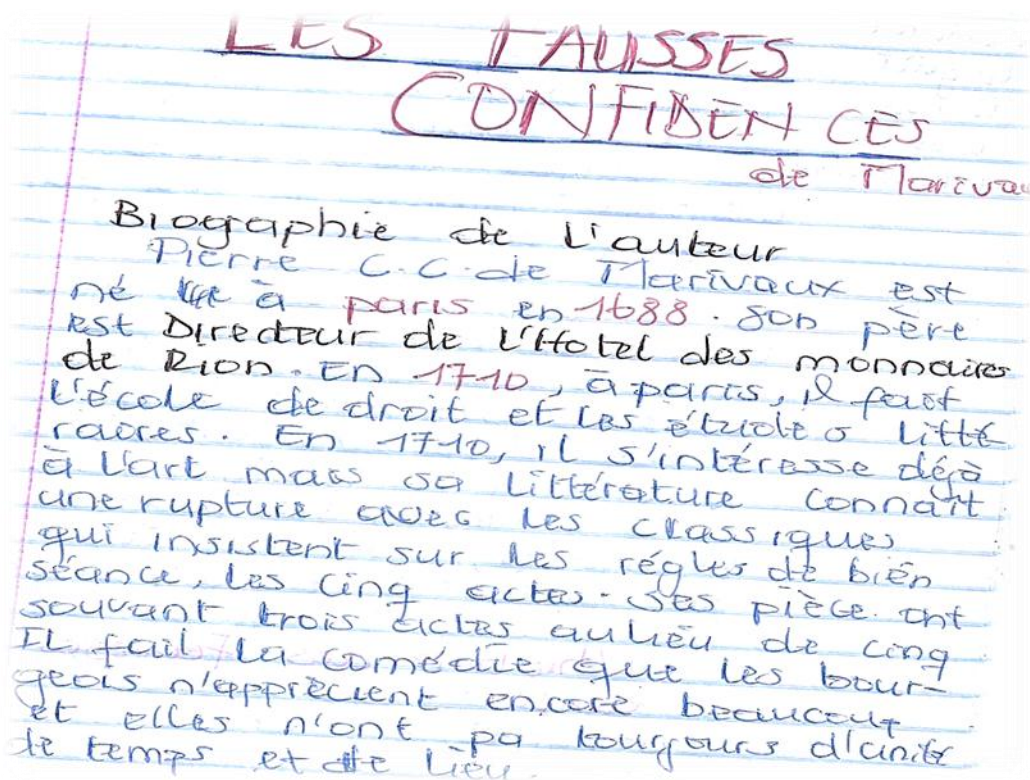 LES FAUSSES
CONFIDENCES
de Marivau
Biographie de l'auteur
Pierre C.C. de Marivaux est
né à paris en 1688. Son père
est Directeur de l'Hotel des monnaires
de Rion. En 1710, à paris, il fait
l'école de droit et les études litté
raires. En 1710, il s'intéresse déjà
à l'art mais sa littérature connaît
une rupture avec les classiques
qui insistent sur les régles de bien
séance, les cinq actes. Ses pièce ont
souvant trois actes aulieu de cinq.
IL fait la comédie que les bour-
geois n'apprècient encore beaucoup.
et elles n'ont pa toujours d'unité
de temps et de lieu.